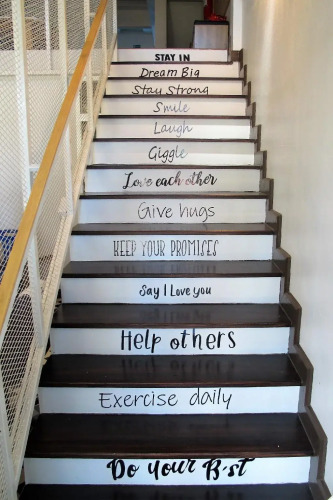 STAY IN
Dream Big
Stay Strong
Smile
Laugh
Giggle
Love each other
Give hugs
KEEP YOUR PROMISES
Say I Love you
Help others
Exercise daily
Do your B st